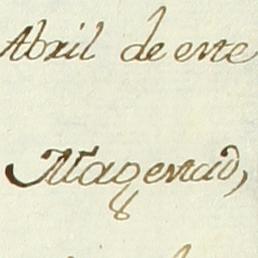 Abril de este
Magestad,